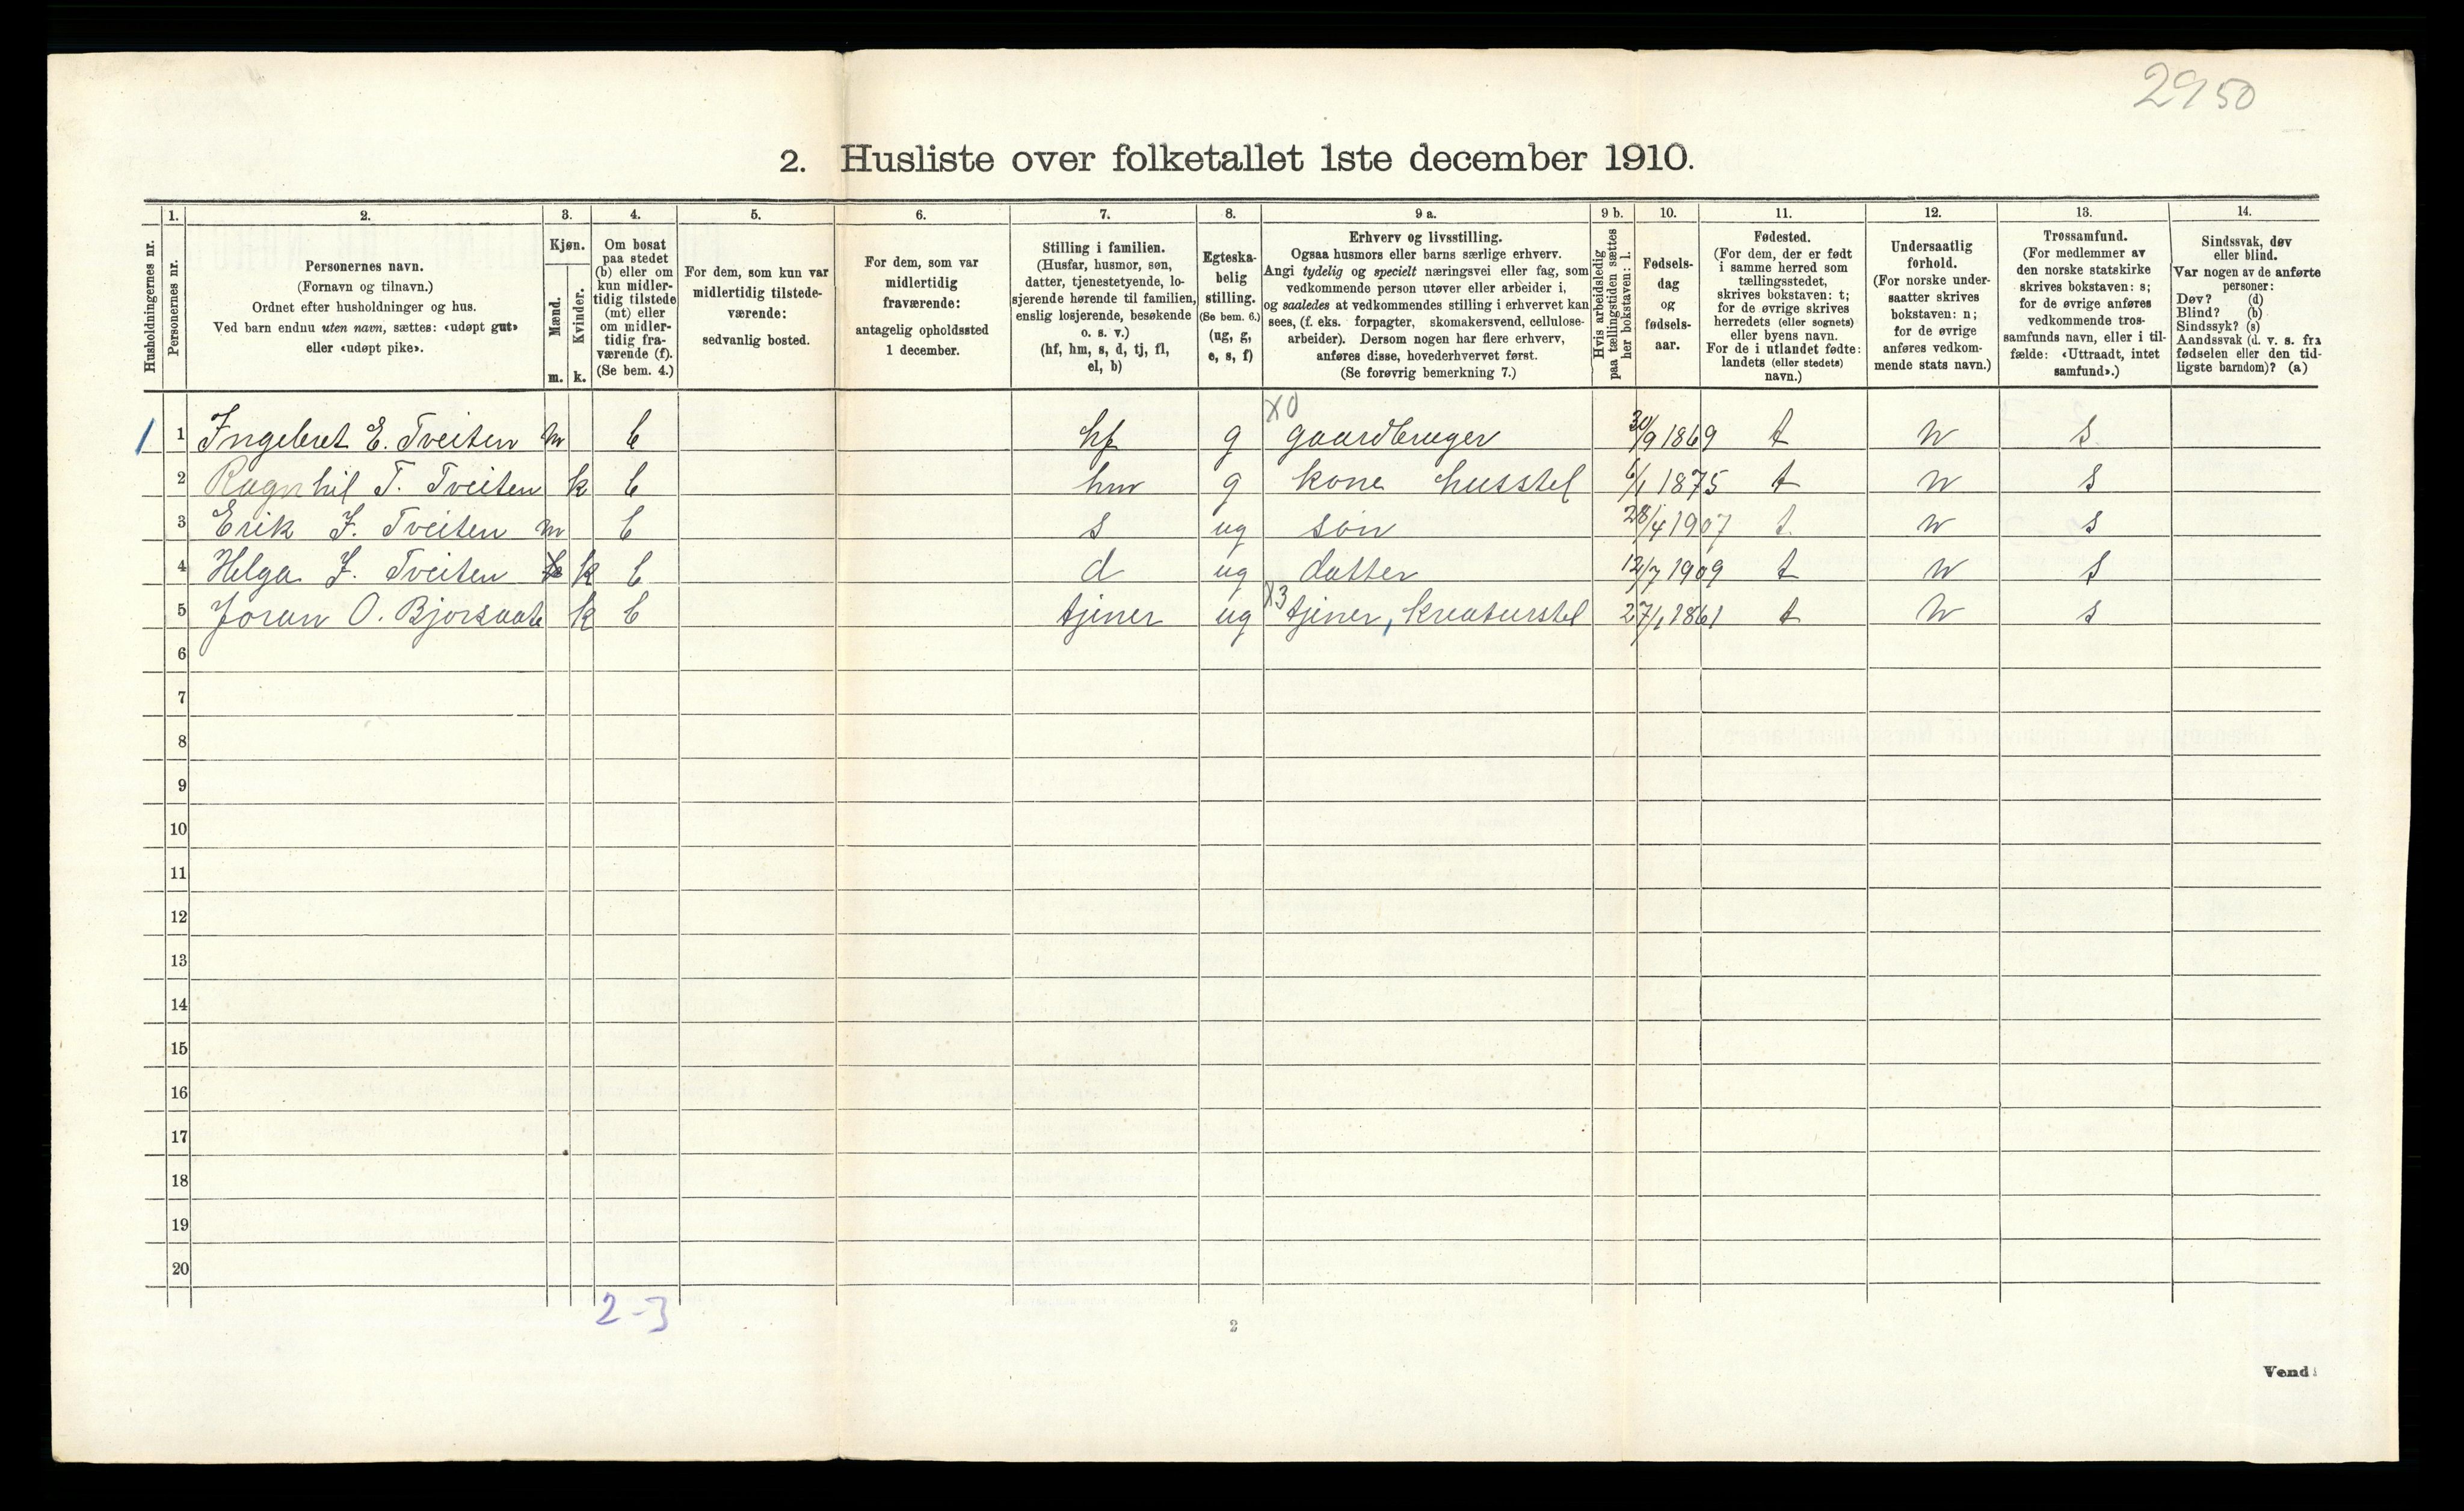 2950
2. Husliste over folketallet 1ste december 1910.
1. 2. 3. 4. 5. 6. 7. 8. 9 a. 9 b. 10. 11. 12. 13. 14.
Husholdningernes nr.
Personernes nr.
Personernes navn.
(Fornavn og tilnavn.)
Ordnet efter husholdninger og hus.
Ved barn endnu uten navn, sættes: «udøpt gut»
eller «udøpt pike».
Kjøn.
Mænd.
m.
Kvinder.
k.
Om bosat
paa stedet
(b) eller om
kun midler-
tidig tilstede
(mt) eller
om midler-
tidig fra-
værende (f).
(Se bem. 4.)
For dem, som kun var
midlertidig tilstede-
værende:
sedvanlig bosted.
For dem, som var
midlertidig
fraværende:
antagelig opholdssted
1 december.
Stilling i familien.
(Husfar, husmor, søn,
datter, tjenestetyende, lo-
sjerende hørende til familien,
enslig losjerende, besøkende
o. s. v.)
(hf, hm, s, d, tj, fl,
el, b)
Egteska-
belig
stilling.
(Se bem. 6.)
(ug, g,
e, s, f)
Erhverv og livsstilling.
Ogsaa husmors eller barns særlige erhverv.
Angi tydelig og specielt næringsvei eller fag, som
vedkommende person utøver eller arbeider i,
og saaledes at vedkommendes stilling i erhvervet kan
sees, (f. eks. forpagter, skomakersvend, cellulose-
arbeider). Dersom nogen har flere erhverv,
anføres disse, hovederhvervet først.
(Se forøvrig bemerkning 7.)
Hvis arbeidsledig
paa tællingstiden sættes
her bokstaven: l.
Fødsels-
dag
og
fødsels-
aar.
Fødested.
(For dem, der er født
i samme herred som
tællingsstedet,
skrives bokstaven: t;
for de øvrige skrives
herredets (eller sognets)
eller byens navn.
For de i utlandet fødte:
landets (eller stedets)
navn.)
Undersaatlig
forhold.
(For norske under-
saatter skrives
bokstaven: n;
for de øvrige
anføres vedkom-
mende stats navn.)
Trossamfund.
(For medlemmer av
den norske statskirke
skrives bokstaven: s;
for de øvrige anføres
vedkommende tros-
samfunds navn, eller i til-
fælde: «Uttraadt, intet
samfund».)
Sindssvak, døv
eller blind.
Var nogen av de anførte
personer:
Døv? (d)
Blind? (b)
Sindssyk? (s)
Aandssvak (d. v. s. fra
fødselen eller den tid-
ligste barndom)? (a)
X0
1 1 Ingebret E. Tveiten m b hf g gaardbruger 30/9 1869 t n s
2 Ragnhil T. Tveiten k b hm g kone husstel 6/1 1875 t n s
3 Erik I. Tveiten m b s ug søn 28/4 1907 t n s
4 Helga I. Tveiten k b d ug datter 12/7 1909 t n s
X3
5 Joran O. Bjorsaat k b tjener ug tjener, kreaturstel 27/1 1861 t n s
6
7
8
9
10
11
12
13
14
15
16
17
18
19
20
2-3
2
Vend!